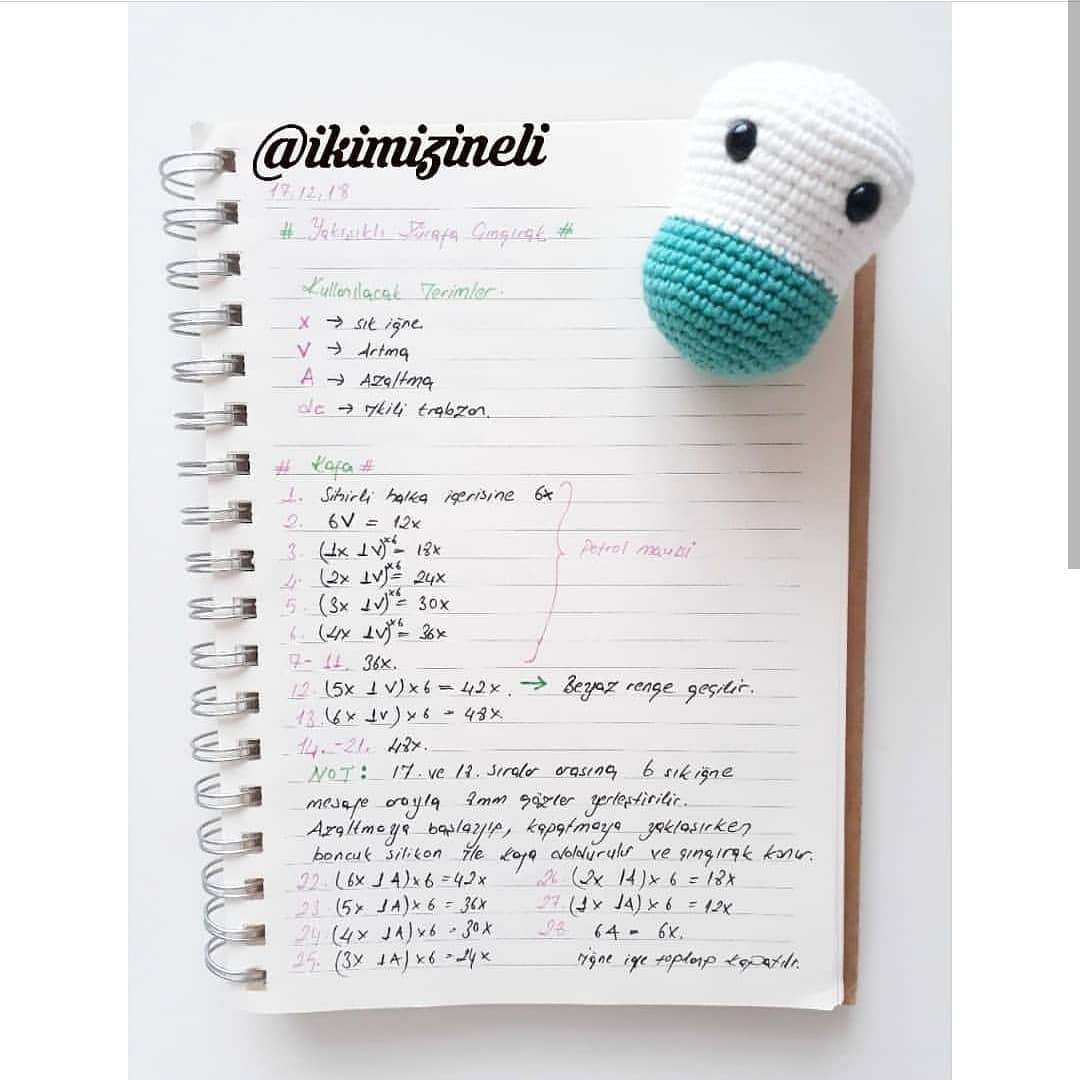 @ikimizineli
17.12.18
# Yakışıklı Zürafa Çıngırak #
Kullanılacak Terimler.
X → sık iğne
V → Artma
A → Azaltma
dc → İkili trabzan.
# Kafa #
1. Sihirli halka içerisine 6x
2. 6V = 12x
3. (1x 1V)x6 = 18x
4. (2x 1V)x6 = 24x
5. (3x 1V)x6 = 30x
6. (4x 1V)x6 = 36x
Petrol mavisi
7-11. 36x.
12. (5x 1V)x6 = 42x. → Beyaz renge geçilir.
13. (6x 1V)x6 = 48x.
14.-21. 48x.
NOT: 17. ve 18. sıralar arasına 6 sık iğne
mesafe arayla 8mm gözler yerleştirilir.
Azaltmaya başlayıp, kapatmaya yaklaşırken
boncuk silikon ile kafa doldurulur ve çıngırak konur.
22. (6x 1A)x6 = 42x
23. (5x 1A)x6 = 36x
24. (4x 1A)x6 = 30x
25. (3x 1A)x6 = 24x
26. (2x 1A)x6 = 18x
27. (1x 1A)x6 = 12x
28. 6A = 6x.
iğne ipe toplanıp kapatılır.